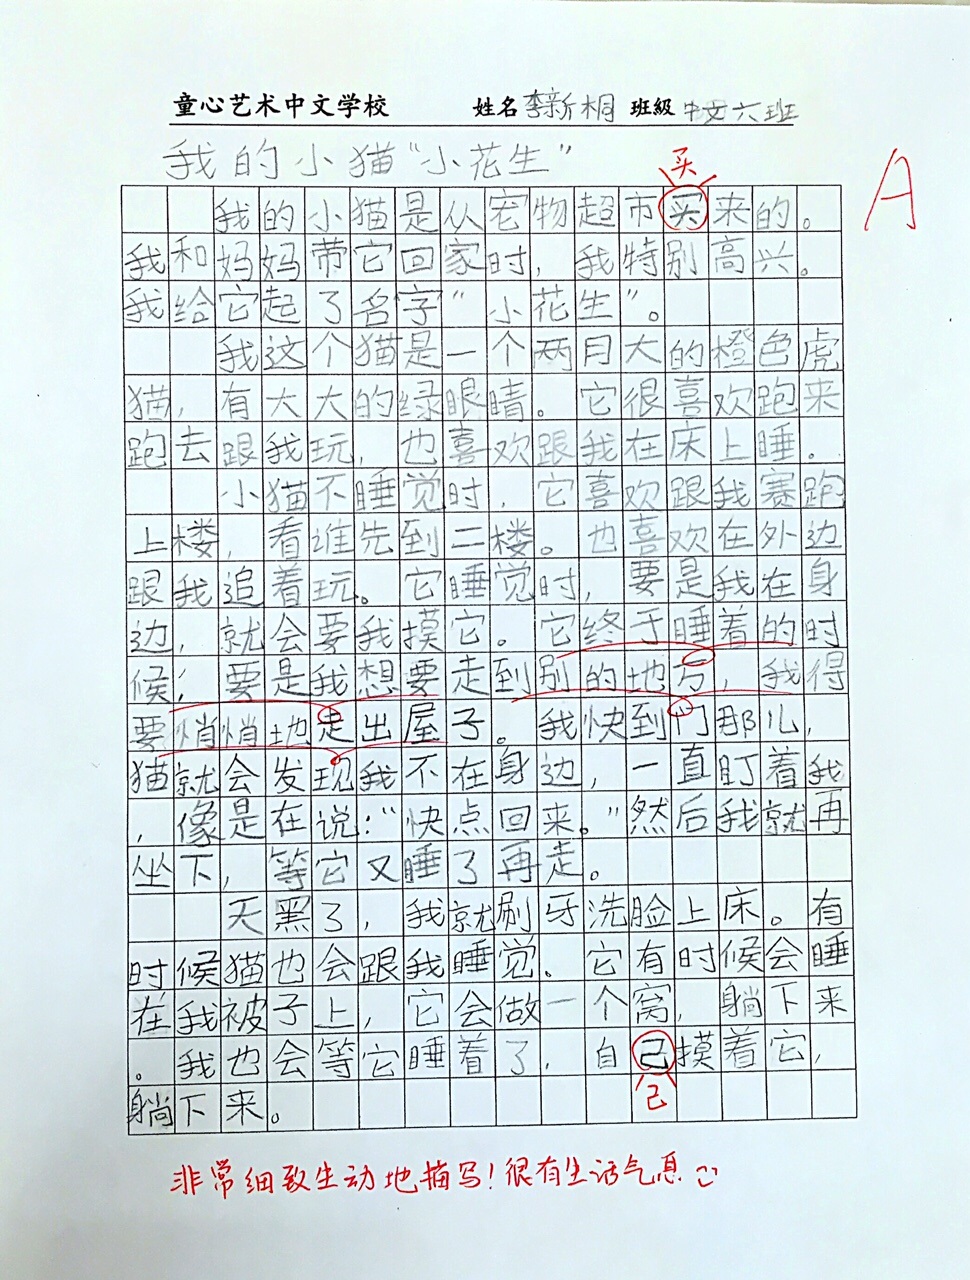 童心艺术中文学校 姓名 李新桐 班級 中文六班
我的小猫“小花生”
买
A
我的小猫是从宠物超市买来的。
我和妈妈带它回家时，我特别高兴。
我给它起了名字“小花生”。
我这个猫是一个两月大的橙色虎
猫，有大大的绿眼睛。它很喜欢跑来
跑去跟我玩，也喜欢跟我在床上睡。
小猫不睡觉时，它喜欢跟我赛跑
上楼，看谁先到二楼。也喜欢在外边
跟我追着玩。它睡觉时，要是我在身
边，就会要我摸它。它终于睡着的时
候，要是我想要走到别的地方，我得
要悄悄地走出屋子。我快到门那儿，
猫就会发现我不在身边，一直盯着我
，像是在说：“快点回来。”然后我就再
坐下，等它又睡了再走。
天黑了，我就刷牙洗脸上床。有
时候猫也会跟我睡觉。它有时候会睡
在我被子上，它会做一个窝，躺下来
。我也会等它睡着了，自己摸着它，
躺下来。
己
非常细致生动地描写！很有生活气息